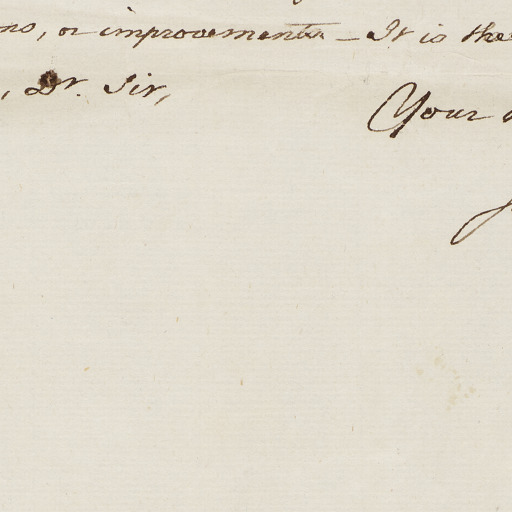 or improvements - It is the
, Dr. Sir,
Your